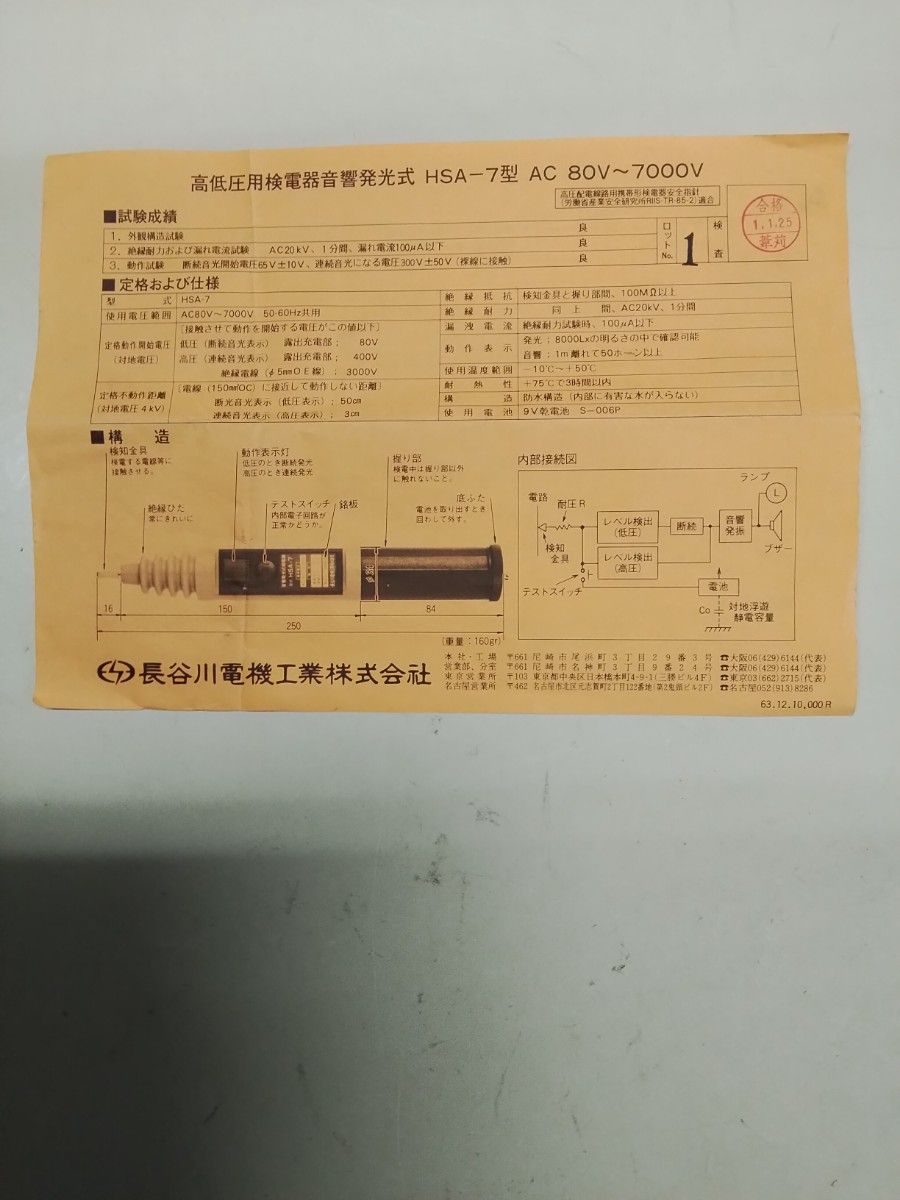 高低圧用検電器音響発光式 HSA-7型 AC 80V〜7000V
高圧配電線路用携帯形検電器安全指針
(労働省産業安全研究所RIIS-TR-85-2)適合
■試験成績
1. 外観構造試験 良
2. 絶縁耐力および漏れ電流試験 AC20kV、1分間、漏れ電流100μA以下 良
3. 動作試験 断続音光開始電圧65V±10V、連続音光になる電圧300V±50V (裸線に接触) 良
ロットNo. 1
検査
合格
1.1.25
■定格および仕様
型式 HSA-7
使用電圧範囲 AC80V〜7000V 50-60Hz共用
定格動作開始電圧
(対地電圧)
[接触させて動作を開始する電圧がこの値以下]
低圧(断続音光表示) 露出充電部; 80V
高圧(連続音光表示) 露出充電部; 400V
絶縁電線(φ5mmOE線); 3000V
定格不動作距離
(対地電圧4kV)
[電線(150㎟OC)に接近して動作しない距離]
断光音光表示(低圧表示); 50cm
連続音光表示(高圧表示); 3cm
絶縁抵抗 検知金具と握り部間、100MΩ以上
絶縁耐力 同上間、AC20kV、1分間
漏洩電流 絶縁耐力試験時、100μA以下
動作表示 発光;8000Lxの明るさの中で確認可能
音響;1m離れて50ホーン以上
使用温度範囲 -10℃〜+50℃
耐熱性 +75℃で3時間以内
構造 防水構造(内部に有害な水が入らない)
使用電池 9V乾電池 S-006P
■構造
検知金具
検電する電線等に
接触させる。
絶縁ひだ
常にきれいに
動作表示灯
低圧のとき断続発光
高圧のとき連続発光
テストスイッチ
内部電子回路が
正常かどうか。
銘板
握り部
検電中は握り部以外
に触れないこと。
底ふた
電池を取り出すとき
回わして外す。
HSA-7
16
150
84
250
(重量:160gr)
内部接続図
電路
耐圧R
検知
金具
テストスイッチ
レベル検出
(低圧)
レベル検出
(高圧)
断続
音響
発振
ランプ
L
ブザー
電池
Co
対地浮遊
静電容量
長谷川電機工業株式会社
本社・工場 〒661 尼崎市尾浜町3丁目29番3号 ☎大阪06(429)6144(代表)
営業部、分室 〒661 尼崎市名神町3丁目9番24号 ☎大阪06(429)6144(代表)
東京営業所 〒103 東京都中央区日本橋本町4-9-1(三勝ビル4F) ☎東京03(662)2715(代表)
名古屋営業所 〒462 名古屋市北区元志賀町2丁目122番地(第2鬼頭ビル2F) ☎名古屋052(913)8286
63.12.10,000R